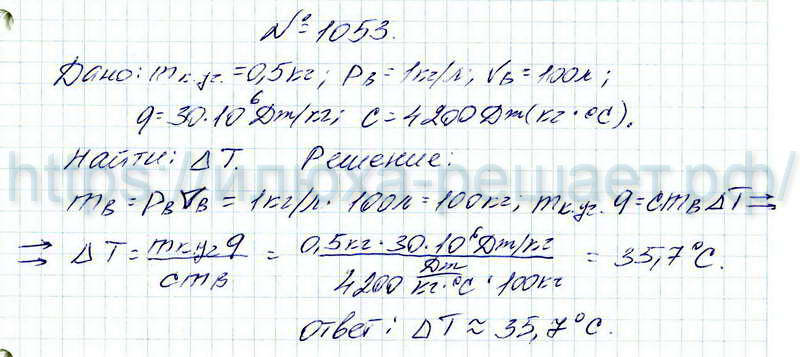 № 1053.
Дано: mк.уг. = 0,5 кг; ρв = 1 кг/л; Vв = 100 л;
q = 30·10⁶ Дж/кг; c = 4200 Дж/(кг·°С).
Найти: ΔT. Решение:
https://илюха-решает.рф/
mв = ρвVв = 1 кг/л · 100 л = 100 кг; mк.уг. q = cmвΔT ⇒
⇒ ΔT = mк.уг q / cmв = 0,5 кг · 30·10⁶ Дж/кг / 4200 Дж/кг·°С · 100 кг = 35,7 °С.
Ответ: ΔT ≈ 35,7 °С.